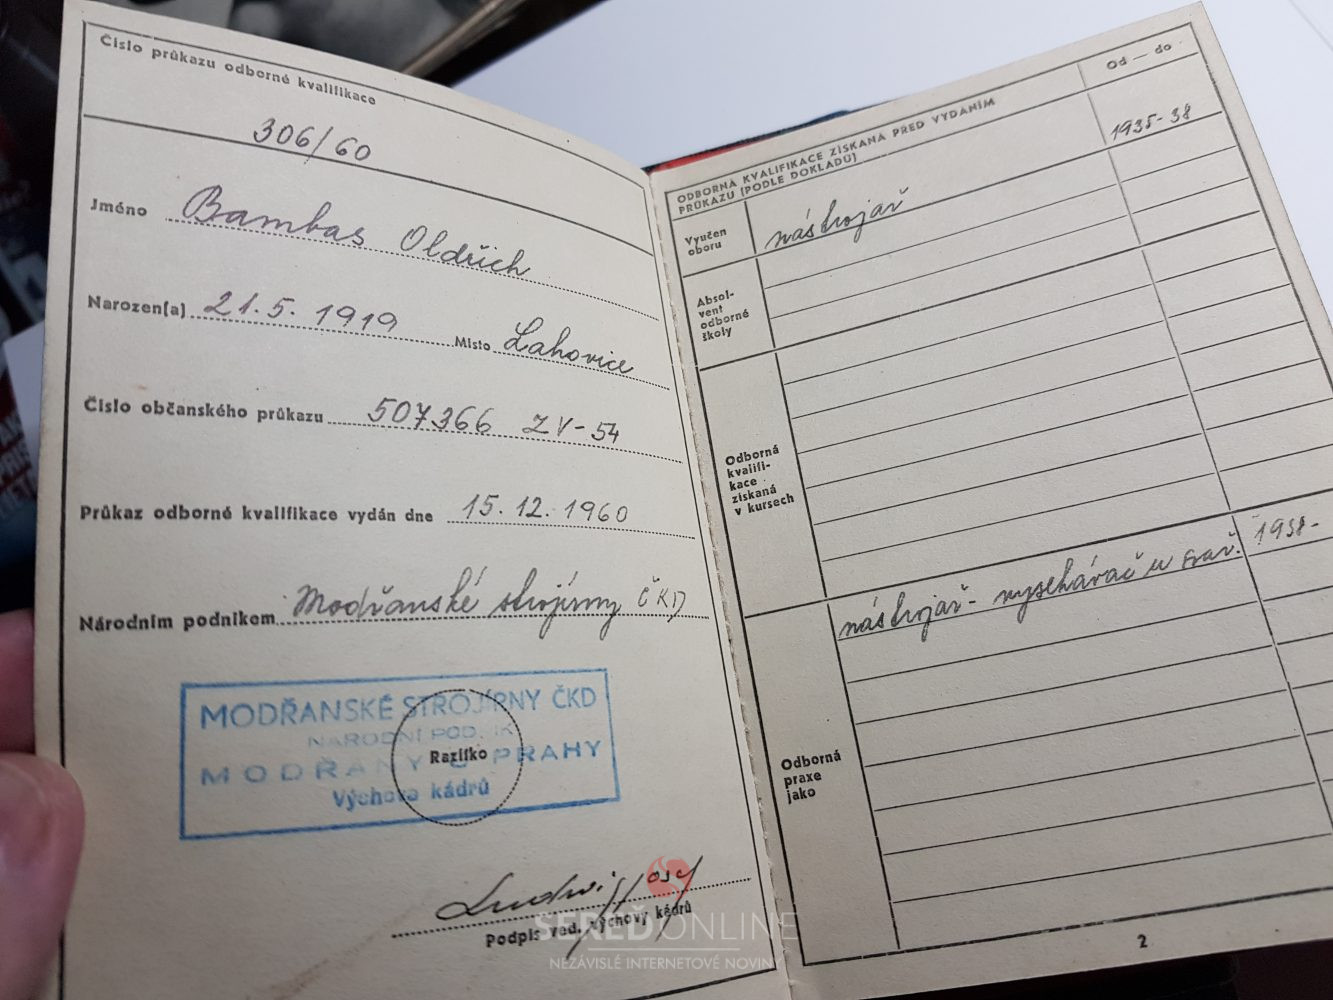 Číslo průkazu odborné kvalifikace
306/60
Jméno Bambas Oldřich
Narozen(a) 21.5.1919 Místo Lahovice
Číslo občanského průkazu 507366 ZV-54
Průkaz odborné kvalifikace vydán dne 15.12.1960
Národním podnikem Modřanské strojírny ČKD
MODŘANSKÉ STROJÍRNY ČKD
NÁRODNÍ PODNIK
MODŘANY U PRAHY
Razítko
Výchova kádrů
Podpis ved. výchovy kádrů
ODBORNÁ KVALIFIKACE ZÍSKANÁ PŘED VYDÁNÍM
PRŮKAZU (PODLE DOKLADŮ)
Od — do
Vyučen
oboru
nástrojař
1935-38
Absol-
vent
odborné
školy
Odborná
kvalifi-
kace
získaná
v kursech
Odborná
praxe
jako
nástrojař - vysekávač u
1938-
2
SEREĎONLINE
NEZÁVISLÉ INTERNETOVÉ NOVINY